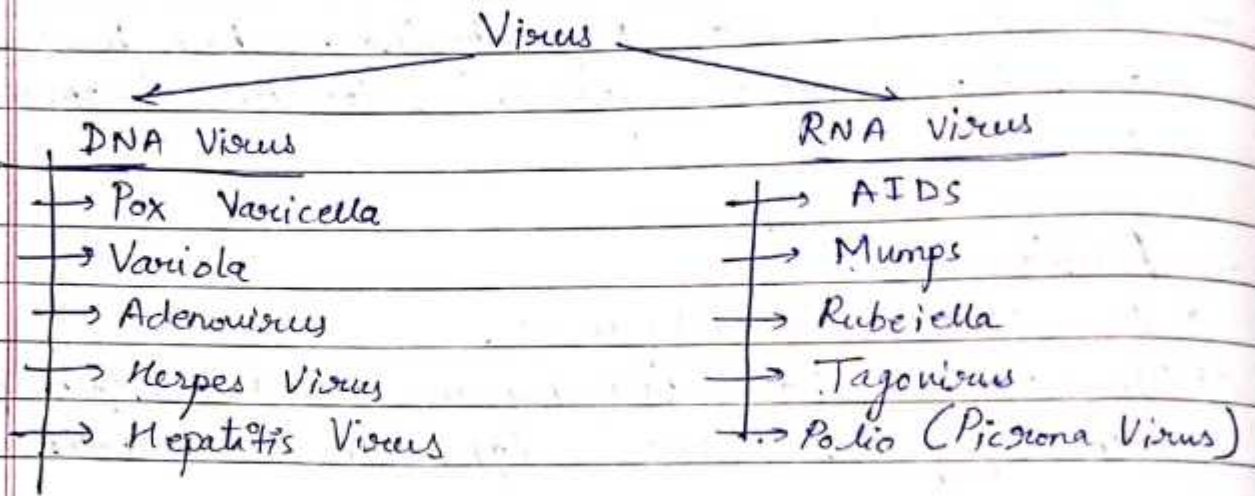 Virus
DNA Virus
→ Pox Varicella
→ Variola
→ Adenovirus
→ Herpes Virus
→ Hepatitis Virus
RNA Virus
→ AIDS
→ Mumps
→ Rubeiella
→ Tagovirus
→ Polio (Picrona Virus)